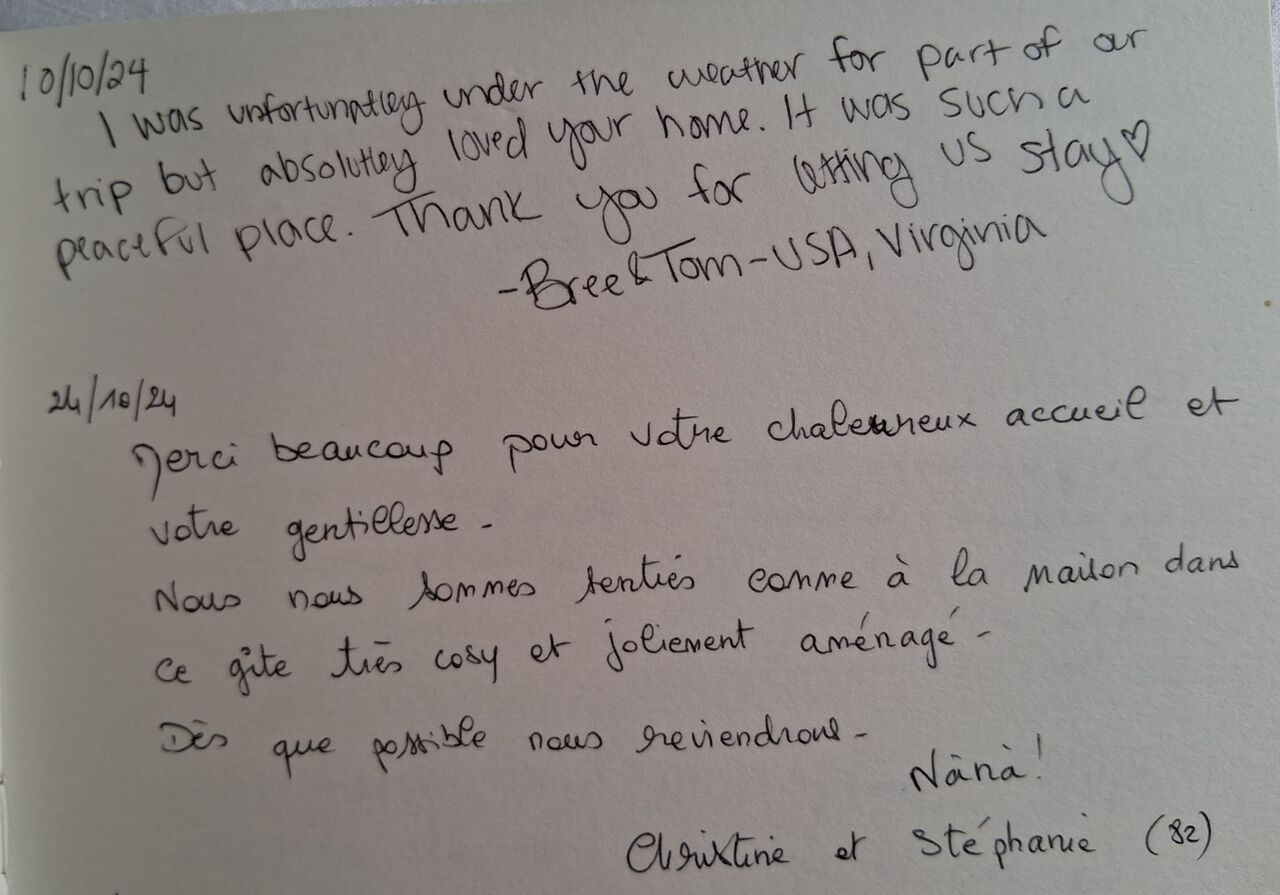 10/10/24
I was unfortunatley under the weather for part of our
trip but absolutley loved your home. It was such a
peaceful place. Thank you for letting us stay♡
-Bree & Tom - USA, Virginia
24/10/24
Merci beaucoup pour votre chaleureux accueil et
votre gentillesse -
Nous nous sommes senties comme à la maison dans
ce gîte très cosy et joliement aménagé -
Dès que possible nous reviendrons -
Nànà!
Christine et Stéphanie (82)